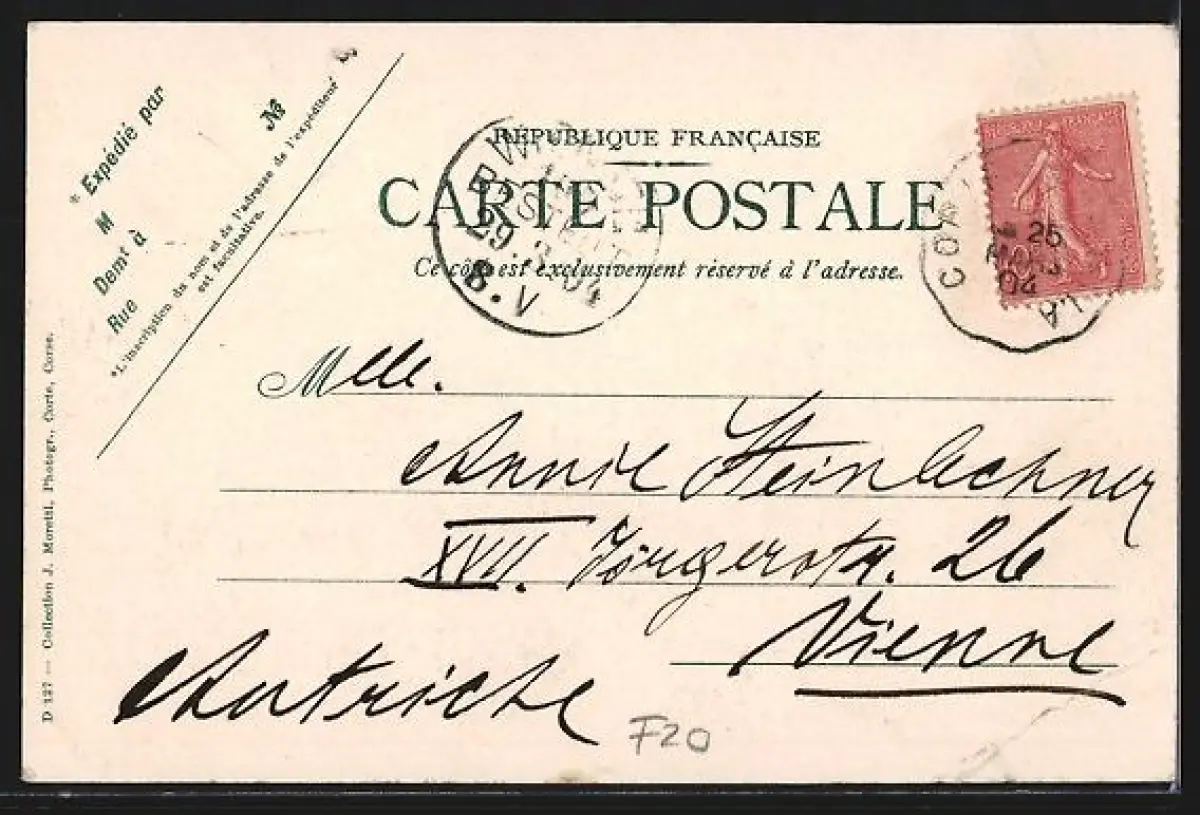 * Expédié par
M
Demt à
Rue
No
*L'inscription du nom et de l'adresse de l'expéditeur
est facultative.
RÉPUBLIQUE FRANÇAISE
CARTE POSTALE
Ce côté est exclusivement réservé à l'adresse.
29.3.04
8.V
25
04
LA
Melle.
Annie Steinlechner
XVII. Jörgerstr. 26
Vienne
Autriche
F20
D 127 — Collection J. Moretti, Photogr., Corte, Corse.